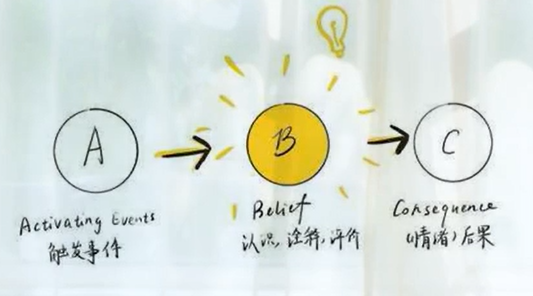 A
B
C
Activating Events
触发事件
Belief
认识,诠释,评价
Consequence
(情绪)后果